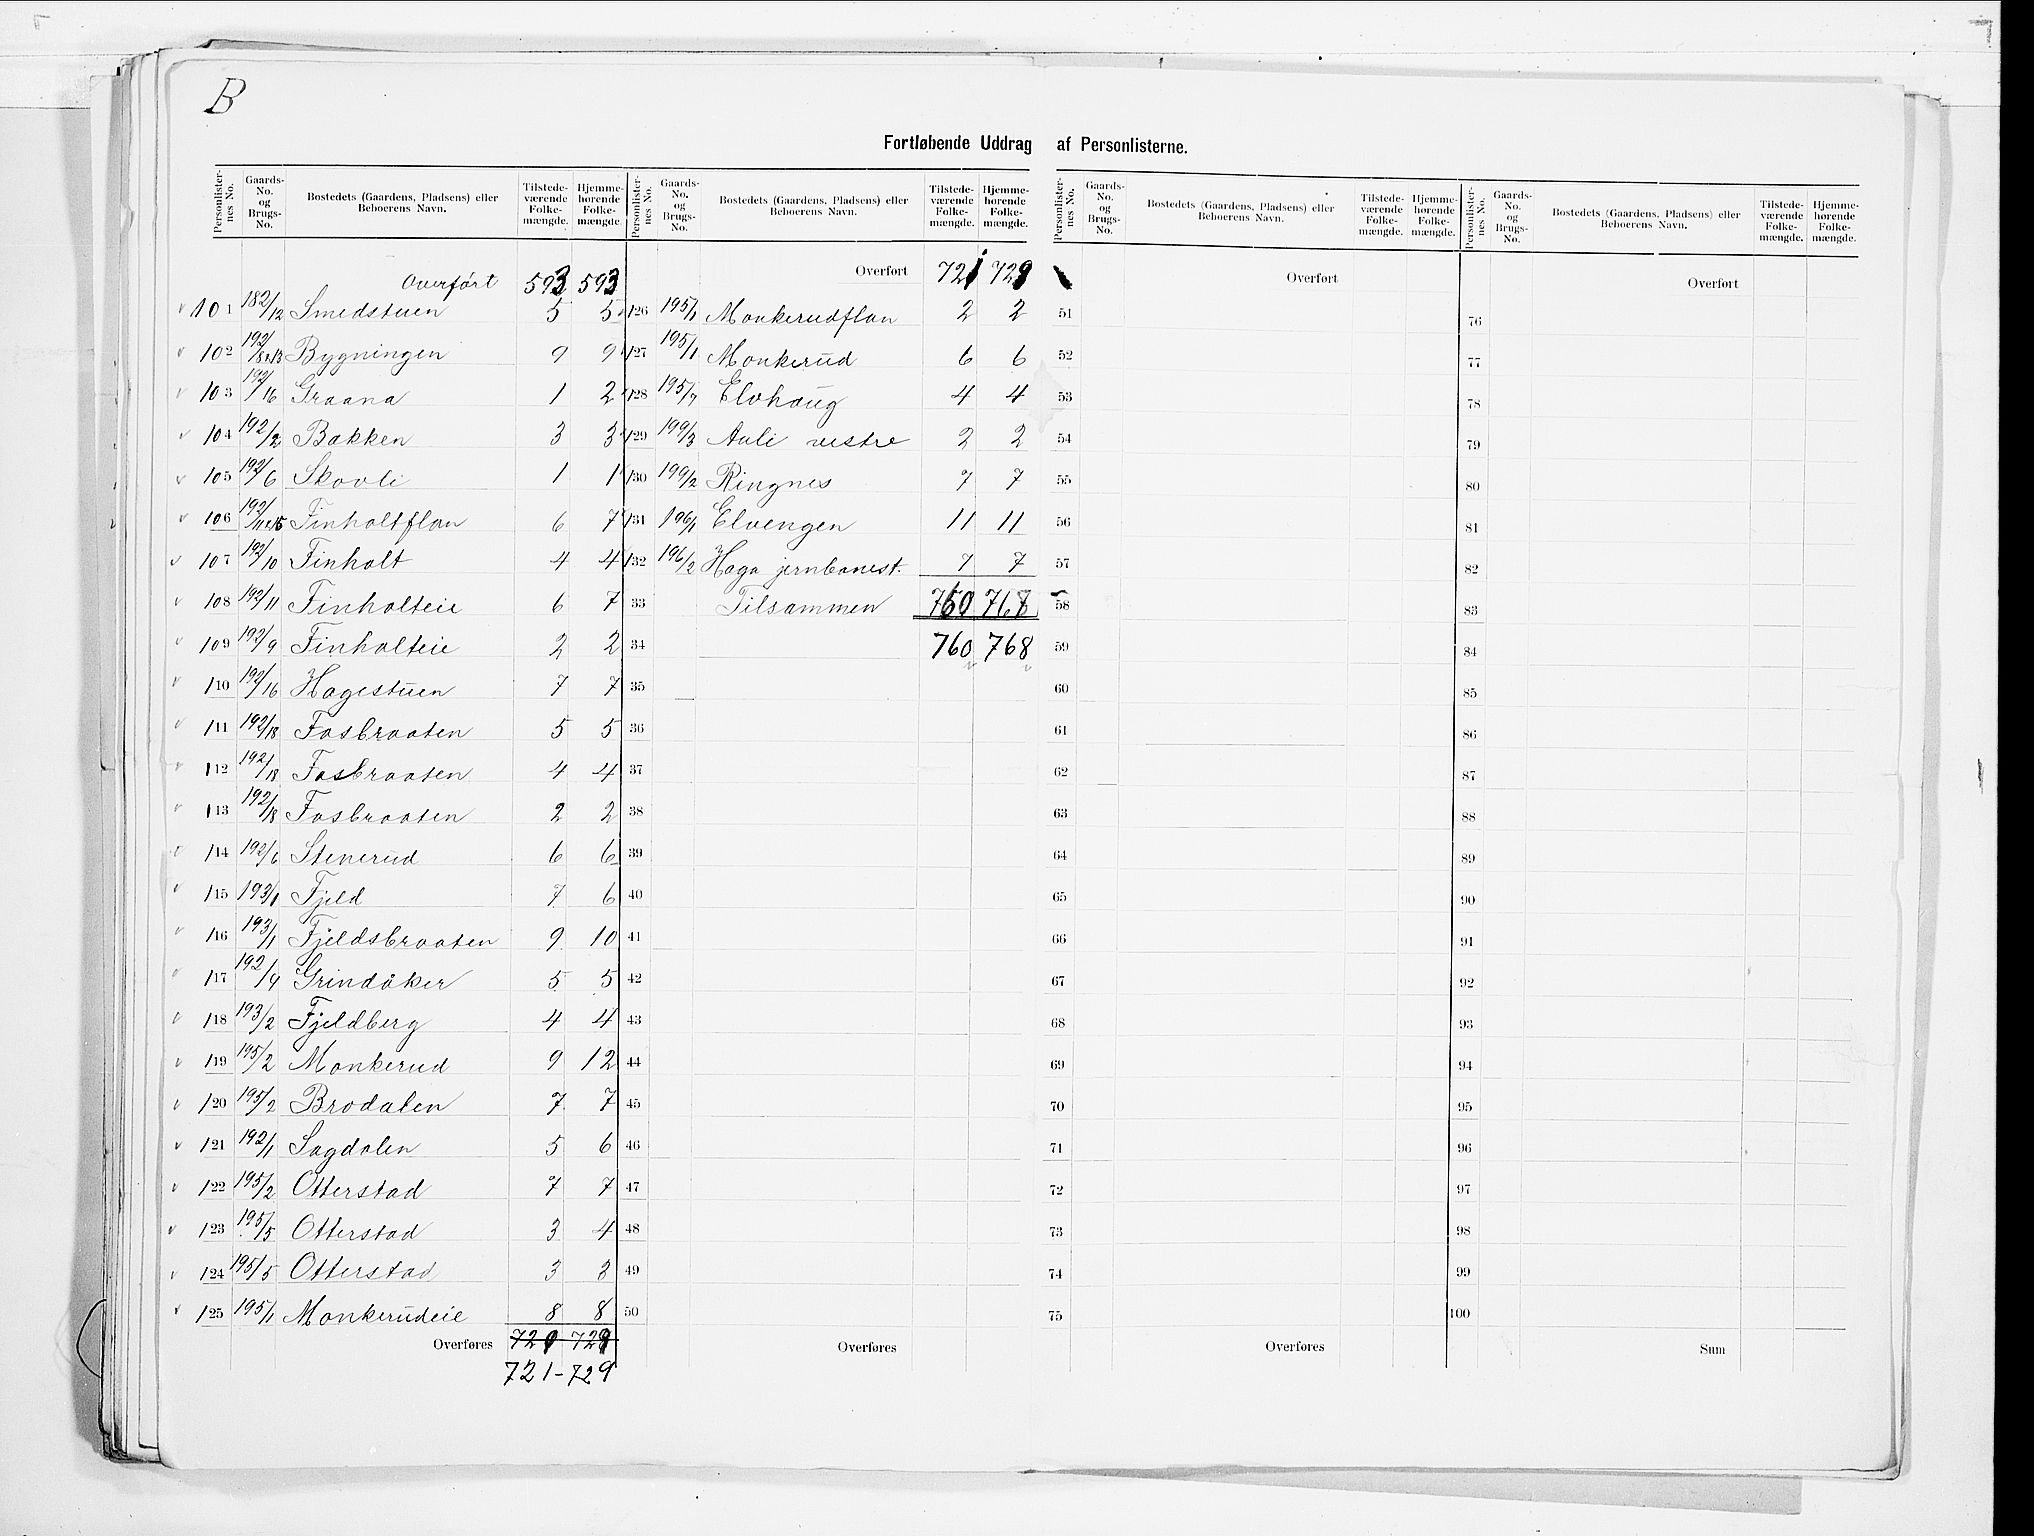 B
Fortløbende Uddrag af Personlisterne.
Personlisternes No. Gaards-No. og Brugs-No. Bostedets (Gaardens, Pladsens) eller Beboerens Navn. Tilstedeværende Folkemængde. Hjemmehørende Folkemængde.
Overført 593 593
101 182/12 Smedstuen 5 5
102 192/ Bygningen 9 9
103 192/16 Graana 1 2
104 192/2 Bakken 3 3
105 192/6 Skovli 1 1
106 192/ Finholtflan 6 7
107 192/10 Finholt 4 4
108 192/11 Finholteie 6 7
109 192/9 Finholteie 2 2
110 192/16 Hagestuen 7 7
111 192/18 Fosbraaten 5 5
112 192/18 Fosbraaten 4 4
113 192/18 Fosbraaten 2 2
114 192/6 Stenerud 6 6
115 193/1 Fjeld 7 6
116 193/1 Fjeldsbraaten 9 10
117 192/4 Grindåker 5 5
118 193/2 Fjeldberg 4 4
119 195/2 Monkerud 9 12
120 195/2 Brodalen 7 7
121 192/1 Sagdalen 5 6
122 195/2 Otterstad 7 7
123 195/5 Otterstad 3 4
124 195/5 Otterstad 3 3
125 195/1 Monkerudeie 8 8
Overføres 721 729
721 - 729
Personlisternes No. Gaards-No. og Brugs-No. Bostedets (Gaardens, Pladsens) eller Beboerens Navn. Tilstedeværende Folkemængde. Hjemmehørende Folkemængde.
Overført 721 729
126 195/1 Monkerudflan 2 2
127 195/1 Monkerud 6 6
128 195/7 Elvhaug 4 4
129 199/3 Auli vestre 2 2
130 199/2 Ringnes 7 7
131 196/1 Elvengen 11 11
132 196/2 Haga jernbanest. 7 7
33 Tilsammen 760 768
34 760 768
35
36
37
38
39
40
41
42
43
44
45
46
47
48
49
50
Overføres
Personlisternes No. Gaards-No. og Brugs-No. Bostedets (Gaardens, Pladsens) eller Beboerens Navn. Tilstedeværende Folkemængde. Hjemmehørende Folkemængde.
Overført
51
52
53
54
55
56
57
58
59
60
61
62
63
64
65
66
67
68
69
70
71
72
73
74
75
Overføres
Personlisternes No. Gaards-No. og Brugs-No. Bostedets (Gaardens, Pladsens) eller Beboerens Navn. Tilstedeværende Folkemængde. Hjemmehørende Folkemængde.
Overført
76
77
78
79
80
81
82
83
84
85
86
87
88
89
90
91
92
93
94
95
96
97
98
99
100
Sum